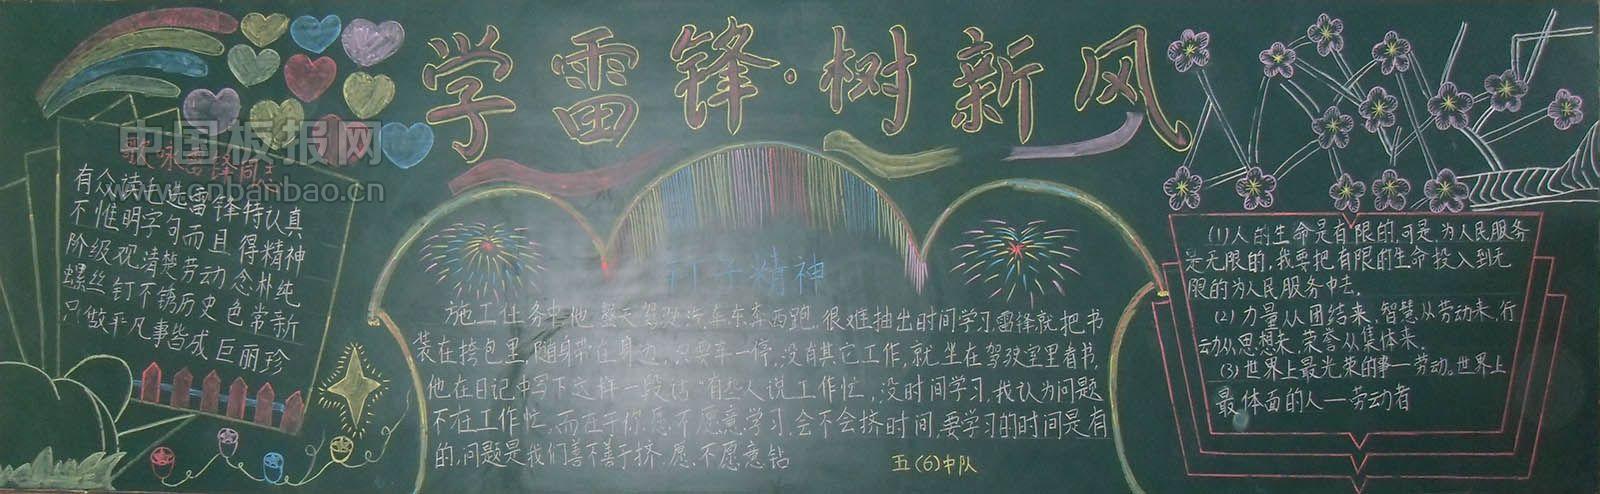 学雷锋·树新风
中国板报网
www.cnbanbao.cn
歌咏雷锋同志
有众读毛选雷锋特认真
不惟明字句而且得精神
阶级观清楚劳动念朴纯
螺丝钉不锈历史色常新
只做平凡事皆成巨丽珍
钉子精神
施工任务中,他整天驾驶汽车东奔西跑,很难抽出时间学习,雷锋就把书
装在挎包里,随身带在身边,只要车一停,没有其它工作,就坐在驾驶室里看书,
他在日记中写下这样一段话:"有些人说工作忙,没时间学习,我认为问题
不在工作忙,而在于你愿不愿意学习,会不会挤时间,要学习的时间是有
的,问题是我们善不善于挤,愿不愿意钻
五(6)中队
(1)人的生命是有限的,可是,为人民服务
是无限的,我要把有限的生命投入到无
限的为人民服务中去。
(2)力量从团结来,智慧从劳动来,行
动从思想来,荣誉从集体来。
(3)世界上最光荣的事—劳动。世界上
最体面的人—劳动者